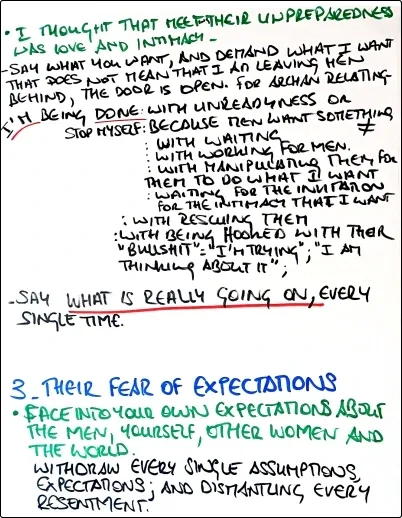 • I THOUGHT THAT MEET THEIR UNPREPAREDNESS
WAS LOVE AND INTIMACY -
- SAY WHAT YOU WANT, AND DEMAND WHAT I WANT
THAT DOES NOT MEAN THAT I AM LEAVING MEN
BEHIND, THE DOOR IS OPEN. FOR ARCHAN RELATING-
I'M BEING DONE: WITH UNREADYNESS OR
STOP MYSELF: BECAUSE MEN WANT SOMETHING
≠
: WITH WAITING
: WITH WORKING FOR MEN.
: WITH MANIPULATING THEM FOR
THEM TO DO WHAT I WANT
: WAITING FOR THE INVITATION
FOR THE INTIMACY THAT I WANT
: WITH RESCUING THEM
: WITH BEING HOOKED WITH THEIR
"BULLSHIT"= "I'M TRYING"; "I AM
THINKING ABOUT IT";
- SAY WHAT IS REALLY GOING ON, EVERY
SINGLE TIME.
3 - THEIR FEAR OF EXPECTATIONS
• FACE INTO YOUR OWN EXPECTATIONS ABOUT
THE MEN, YOURSELF, OTHER WOMEN AND
THE WORLD.
WITHDRAW EVERY SINGLE ASSUMPTIONS,
EXPECTATIONS; AND DISMANTLING EVERY
RESENTMENT.